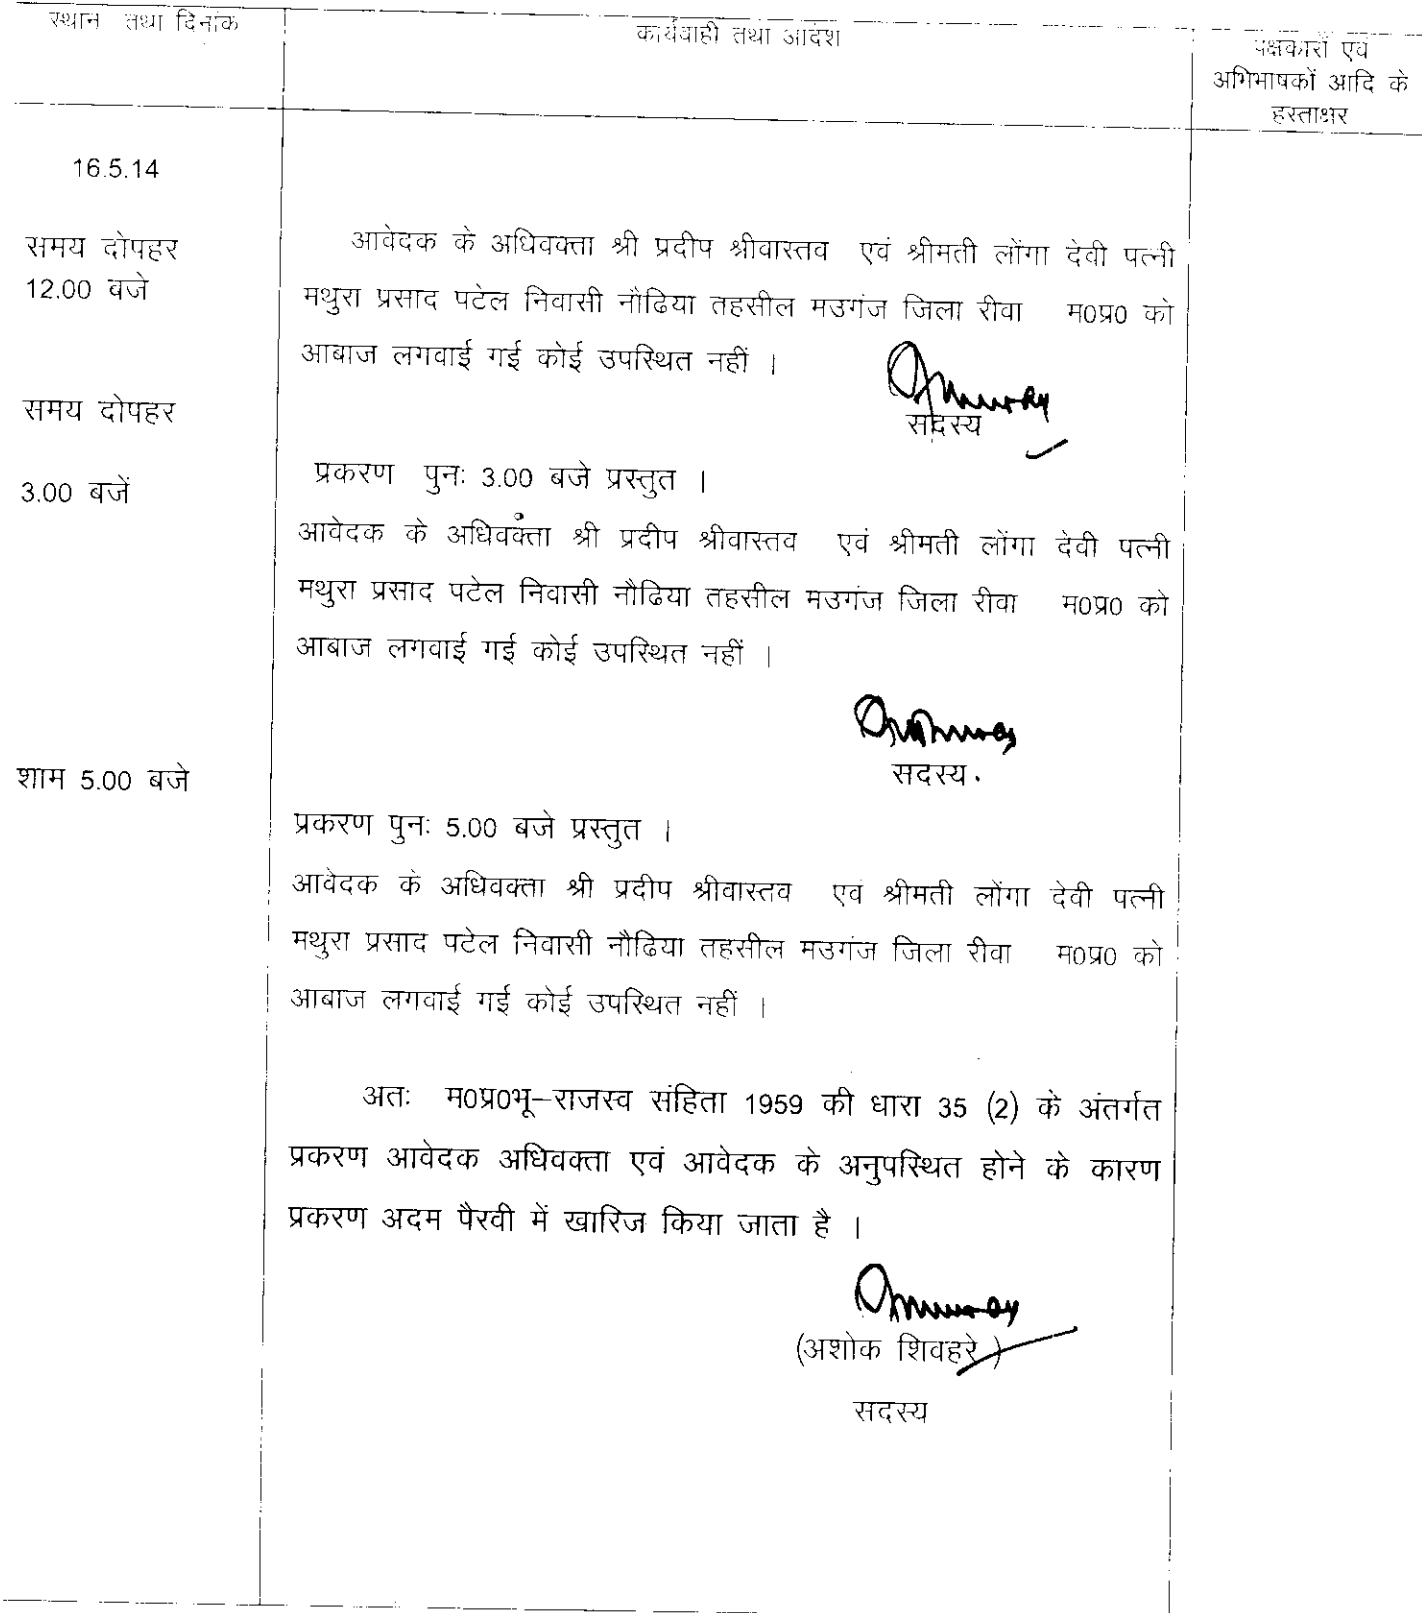 स्थान तथा दिनांक
कार्यवाही तथा आदेश
पक्षकारों एवं
अभिभाषकों आदि के
हस्ताक्षर
16.5.14
समय दोपहर
12.00 बजे
आवेदक के अधिवक्ता श्री प्रदीप श्रीवास्तव एवं श्रीमती लोंगा देवी पत्नी
मथुरा प्रसाद पटेल निवासी नौढिया तहसील मउगंज जिला रीवा म0प्र0 को
आबाज लगवाई गई कोई उपस्थित नहीं ।
सदस्य
समय दोपहर
3.00 बजें
प्रकरण पुनः 3.00 बजे प्रस्तुत ।
आवेदक के अधिवक्ता श्री प्रदीप श्रीवास्तव एवं श्रीमती लोंगा देवी पत्नी
मथुरा प्रसाद पटेल निवासी नौढिया तहसील मउगंज जिला रीवा म0प्र0 को
आबाज लगवाई गई कोई उपस्थित नहीं ।
सदस्य.
शाम 5.00 बजे
प्रकरण पुनः 5.00 बजे प्रस्तुत ।
आवेदक के अधिवक्ता श्री प्रदीप श्रीवास्तव एवं श्रीमती लोंगा देवी पत्नी
मथुरा प्रसाद पटेल निवासी नौढिया तहसील मउगंज जिला रीवा म0प्र0 को
आबाज लगवाई गई कोई उपस्थित नहीं ।
अतः म0प्र0भू–राजस्व संहिता 1959 की धारा 35 (2) के अंतर्गत
प्रकरण आवेदक अधिवक्ता एवं आवेदक के अनुपस्थित होने के कारण
प्रकरण अदम पैरवी में खारिज किया जाता है ।
(अशोक शिवहरे )
सदस्य